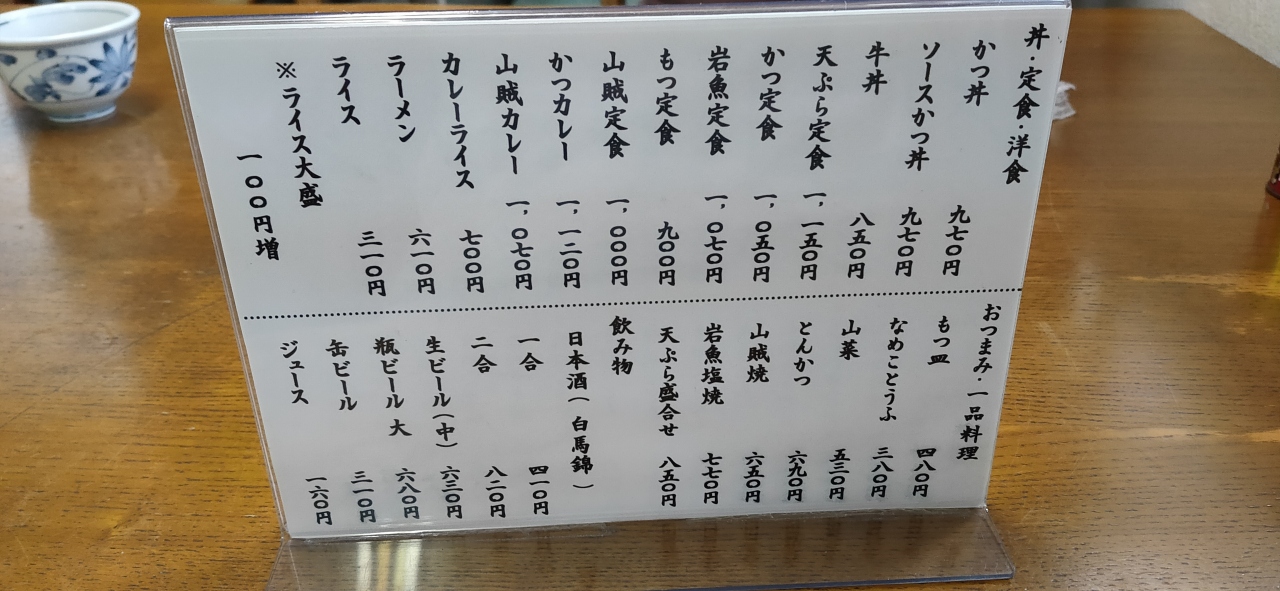 丼・定食・洋食
かつ丼 九七〇円
ソースかつ丼 九七〇円
牛丼 八五〇円
天ぷら定食 一,一五〇円
かつ定食 一,〇五〇円
岩魚定食 一,〇七〇円
もつ定食 九〇〇円
山賊定食 一,〇〇〇円
かつカレー 一,一二〇円
山賊カレー 一,〇七〇円
カレーライス 七〇〇円
ラーメン 六一〇円
ライス 三一〇円
※ライス大盛
一〇〇円増
おつまみ・一品料理
もつ皿 四八〇円
なめことうふ 三八〇円
山菜 五三〇円
とんかつ 六九〇円
山賊焼 六五〇円
岩魚塩焼 七七〇円
天ぷら盛合せ 八五〇円
飲み物
日本酒(白馬錦)
一合 四一〇円
二合 八二〇円
生ビール(中) 六三〇円
瓶ビール 大 六八〇円
缶ビール 三一〇円
ジュース 一六〇円